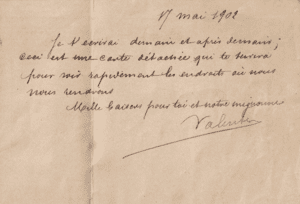 17 mai 1902
Je t'écrirai demain et après demain;
ceci est une carte détachée qui te servira
pour voir rapidement les endroits où nous
nous rendrons
Mille baisers pour toi et notre mignonne